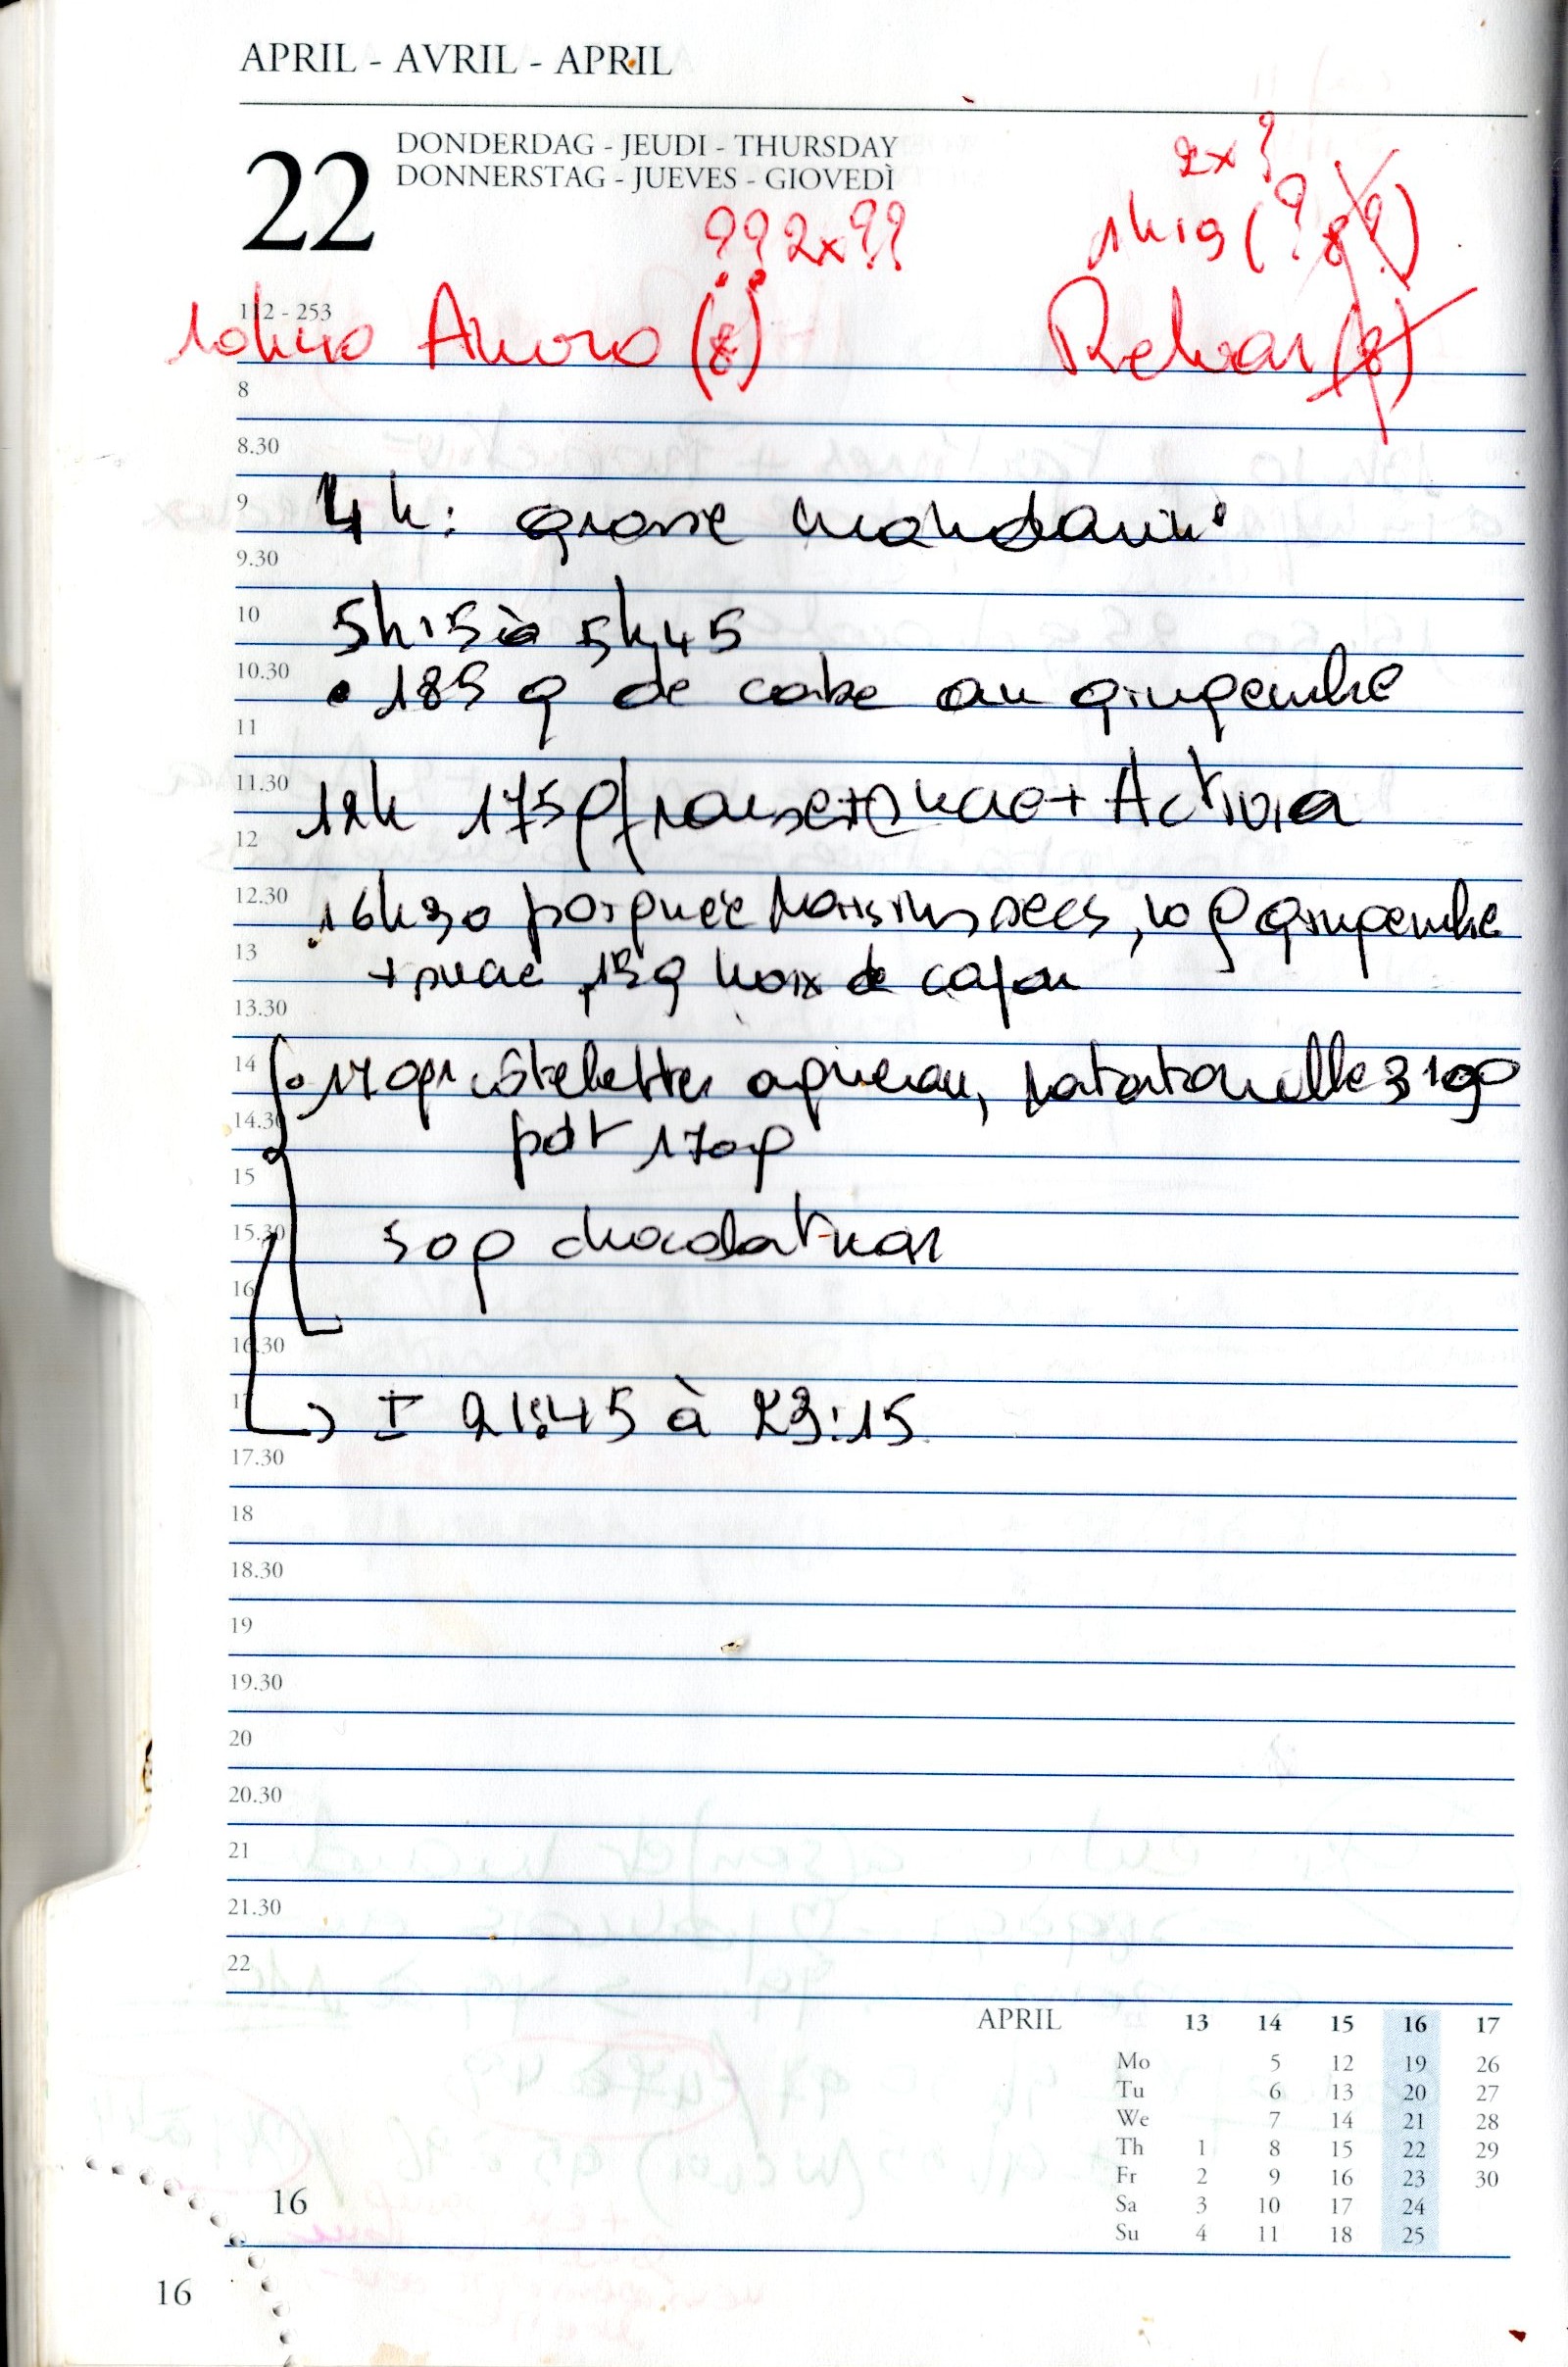 APRIL - AVRIL - APRIL
22
DONDERDAG - JEUDI - THURSDAY
DONNERSTAG - JUEVES - GIOVEDÌ
2x?
??2x??
1h19 (? 8?)
112 - 253
10h40 (8) (8)
8
8.30
9 4h: grosse mandarine
9.30
10 5h15 à 5h45
10.30 • 185 g de cake au gingembre
11
11.30 12h 175g fraise+sucre+Activia
12
12.30 16h30 poignée raisins secs, 10 g gingembre
13 + sucre, 15g noix de cajou
13.30
14 • 170gr côtelettes agneau, ratatouille 310g
14.30 pdt 170g
15
15.30 50g chocolat noir
16
16.30
17 → ± 21:45 à 23:15
17.30
18
18.30
19
19.30
20
20.30
21
21.30
22
APRIL 13 14 15 16 17
Mo 5 12 19 26
Tu 6 13 20 27
We 7 14 21 28
Th 1 8 15 22 29
Fr 2 9 16 23 30
Sa 3 10 17 24
Su 4 11 18 25
16
16